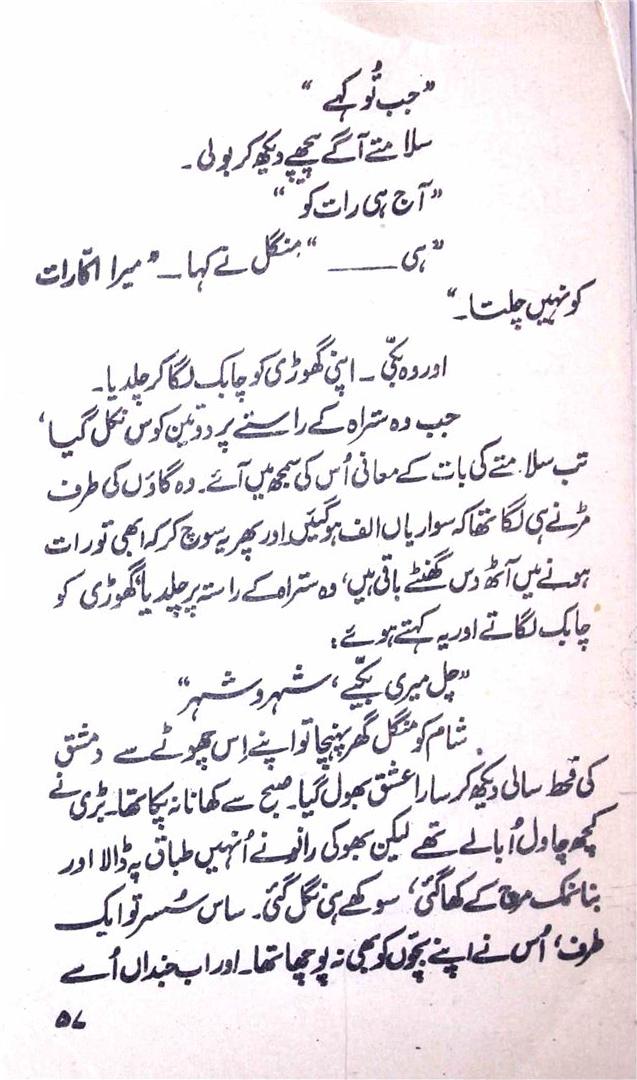 ”جب تُو کہے “
سلامتے آگے پیچھے دیکھ کر بولی۔
”آج ہی رات کو “
”ہی ——— “ منگل نے کہا۔ ”میرا اکّا رات
کو نہیں چلتا۔“
اور وہ بکّی۔ اپنی گھوڑی کو چابک لگا کر چلدیا۔
جب وہ ستراہ کے راستے پر دو تین کوس نکل گیا،
تب سلامتے کی بات کے معانی اُس کی سمجھ میں آئے۔ وہ گاؤں کی طرف
مڑنے ہی لگا تھا کہ سواریاں الف ہوگئیں اور پھر یہ سوچ کر کہ ابھی تو رات
ہونے میں آٹھ دس گھنٹے باقی ہیں، وہ ستراہ کے راستہ پر چلدیا، گھوڑی کو
چابک لگاتے اور یہ کہتے ہوئے :
”چل میری بکّیے، شہر و شہر“
شام کو منگل گھر پہنچا تو اپنے اِس چھوٹے سے دمشق
کی قحط سالی دیکھ کر سارا عشق بھول گیا۔ صبح سے کھانا نہ پکا تھا۔ بڑی نے
کچھ چاول اُبالے تھے لیکن بھوکی رانو نے اُنہیں طباق پہ ڈالا اور
بنا نمک مرچ کے کھا گئی، سوکھے ہی نگل گئی۔ ساس سُسر تو ایک
طرف، اُس نے اپنے بچّوں کو بھی نہ پوچھا تھا۔ اور اب جنداں اُسے
۵۷